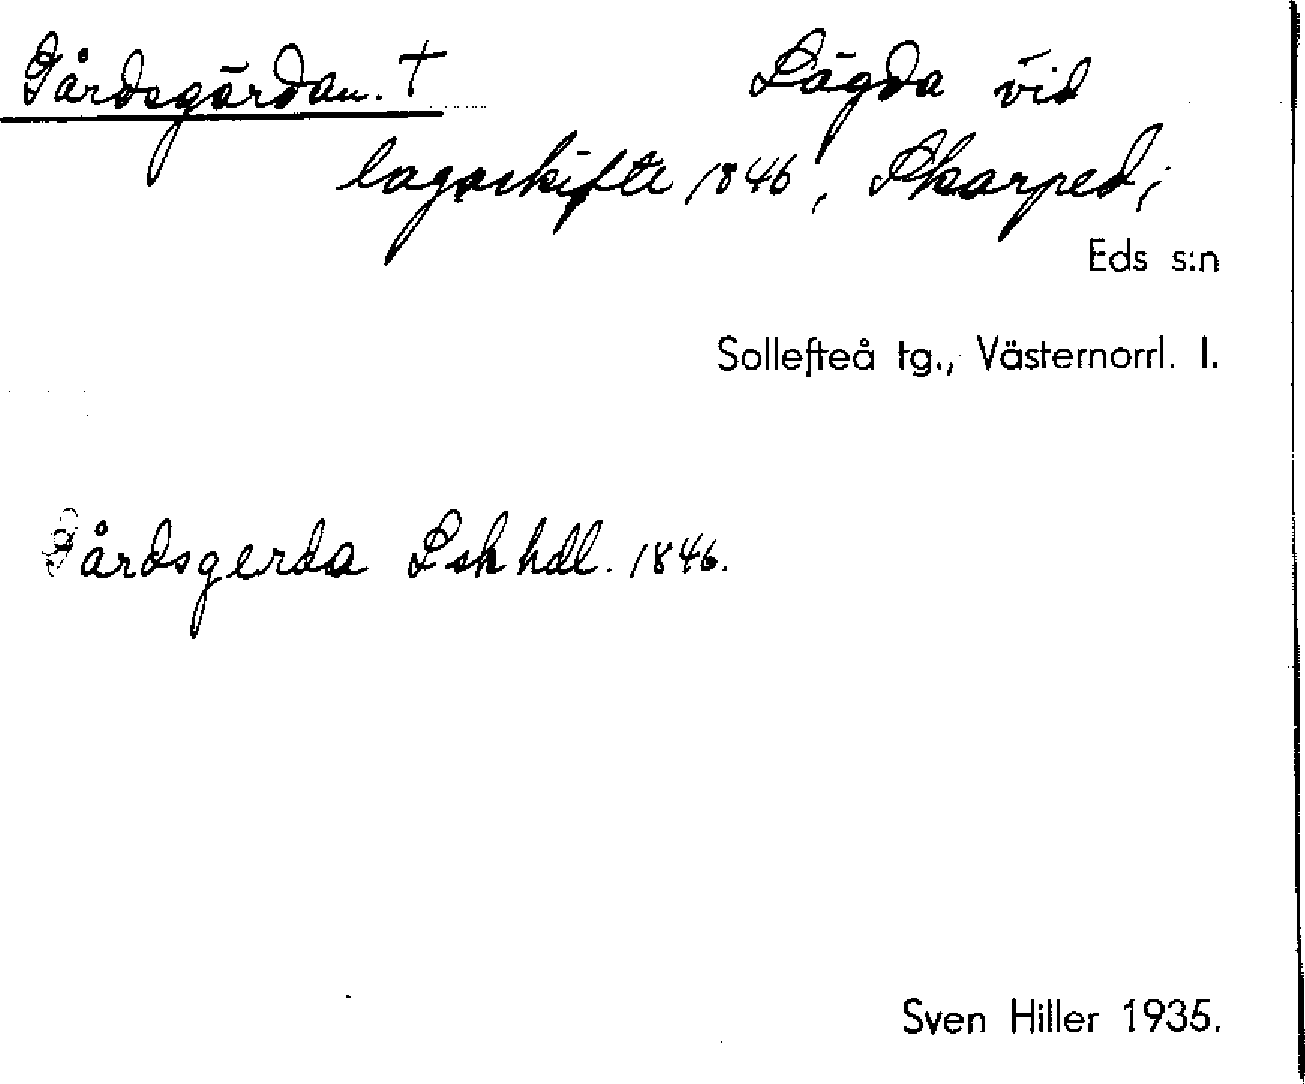 Gårdsgärdan. † Lägda vid
lagaskifte 1846, Skarped,
Eds s:n
Sollefteå tg., Västernorrl. l.
Gårdsgerda Lskhdl. 1846.
Sven Hiller 1935.